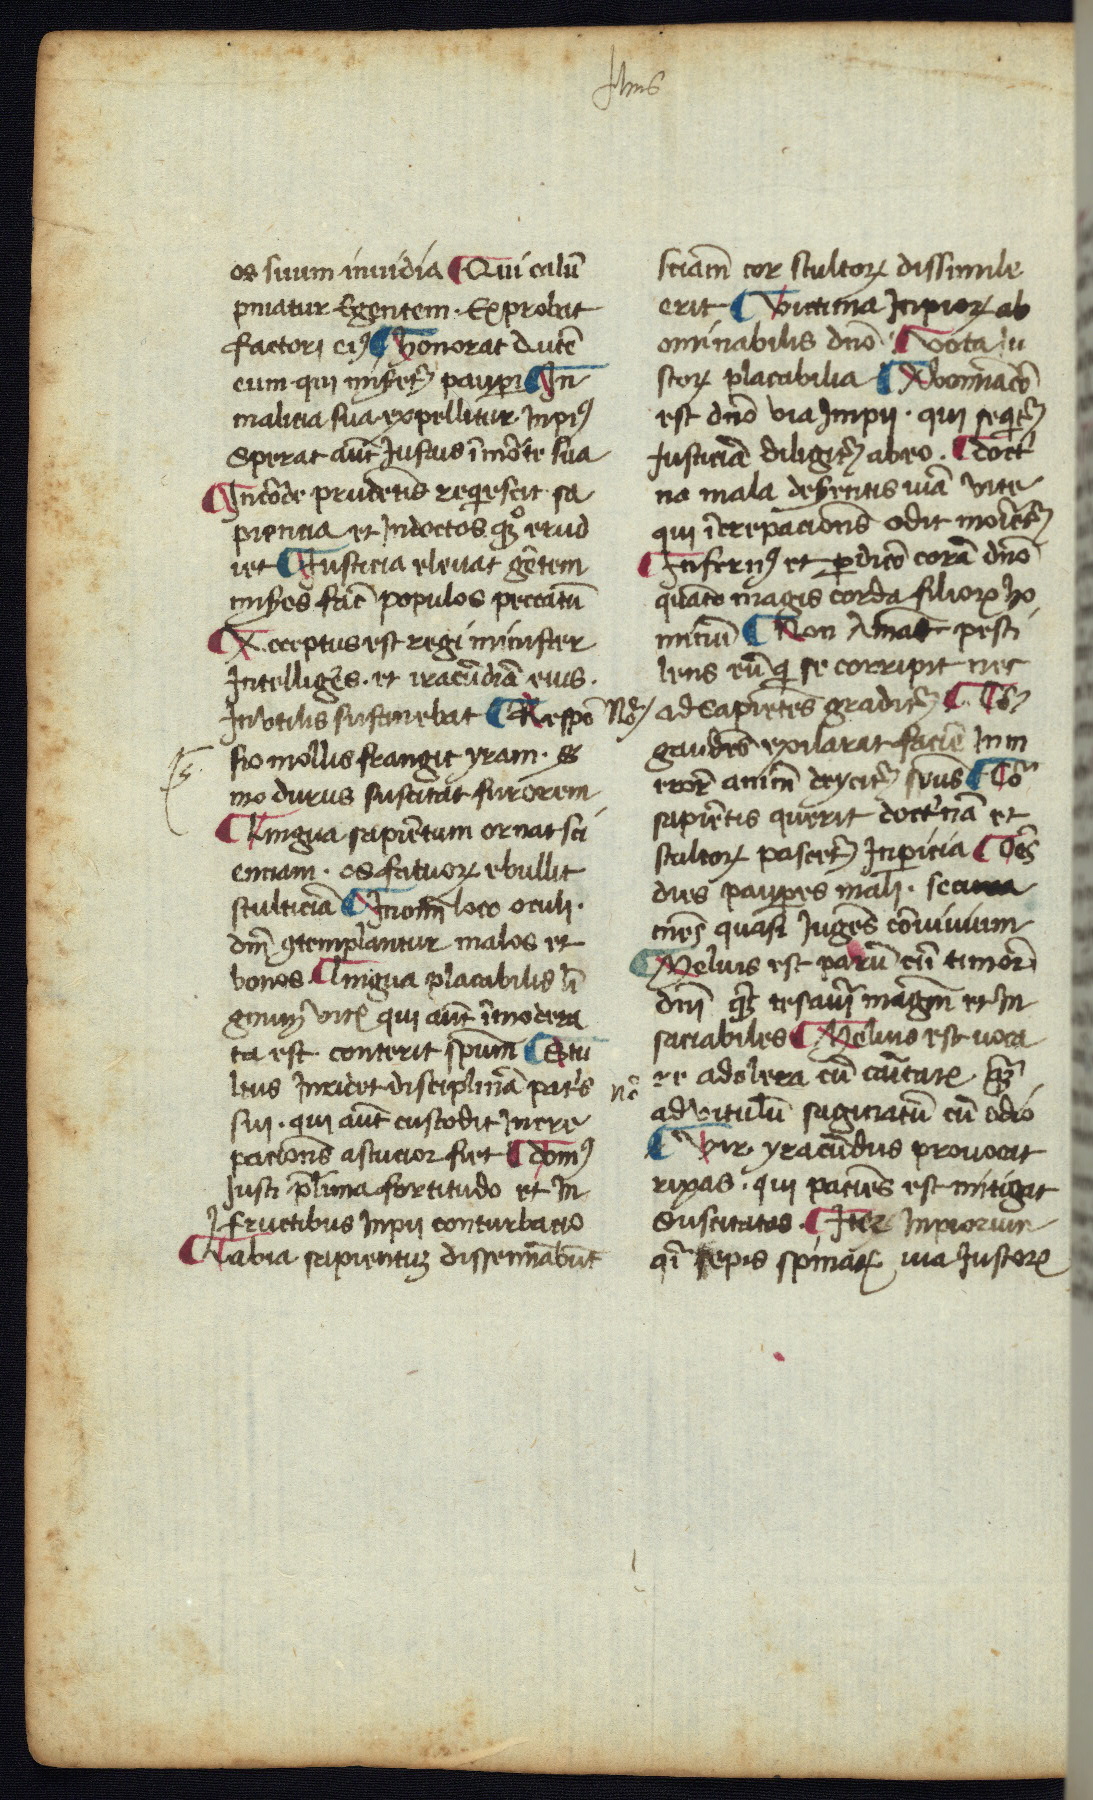 Jhus
os suum inuidia ¶ Qui calū
pniatur Egentem · Exprobat
factori eiꝰ ¶ honorat Autē
eum qui miseretꝰ pauꝑi ¶ In
malicia sua expellitur Inpiꝰ
Sperat aut̄ Justus ī mōte sua
¶ In corde prudētis reqͥescit sa
piencia et Indoctos qͦꝫ erud
iet ¶ Justicia eleuat gētem
miseros facit populos peccatū
¶ Acceptus est regi minister
Intelligēs · et iracūdiā eius ·
Inutilis sustinebat ¶ Respō
sio mollis frangit yram · Ser
mo durus suscitat furorem
¶ Lingua sapiētum ornat sci
enciam · os fatuoꝝ ebullit
stulticiā ¶ In om̄i loco oculi ·
dn̄i ꝯtemplantur malos et
bonos ¶ lingua placabilis li
gnum vite qui aut̄ īmodera
ta est conterit spm̄ ¶ Stu
ltus Inridet disciplinā patͥs
sui · qui aut̄ custodit Incre
pacōnes astucior fiet ¶ domꝰ
Justi plīma fortitudo et In
fructibus Inpii conturbacio
¶ Labia sapientuꝫ dissemīabūt
sciam̄ cor stultoꝝ dissimile
erit ¶ Victima Inpioꝝ ab
ominabilis dn̄o ¶ Vota iu
stoꝝ placabilia ¶ Abominacō
est dn̄o via Impii · qui seqͥtꝰ
Justiciā diligitꝰ ab eo · ¶ doctͥ
na mala deserentis viā vite
qui īcrepacionē odit morietꝰ
¶ Infernꝰ et ꝑdicō corā dn̄o
quāto magis corda filioꝝ ho
minum ¶ Non Amat pesti
lens eū qͥ se corripit nec
No ad Sapiētes graditꝰ ¶ Cor
gaudēs exilarat faciē In m
eror̄ animi deycitꝰ spūs ¶ Cor
sapiētis querit doctͥnā et
stultoꝝ pascetꝰ Inpericia ¶ Om̄s
dies pauꝑes mali · secura
mēs quasi Juges cōuiuium
¶ Melius est parū cū timore
dn̄i qͣꝫ tesauri magni et In
saciabiles ¶ Melius est uoca
No re ad olera cū caritate qͣꝫ
ad vitulū saginatū cū odio
¶ Vir yracūdus prouocat
rixas · qui paciēs est mitigat
Suscitatas · ¶ Iter Inpiorum
qͣi sepis spinaꝝ via Justoꝝ